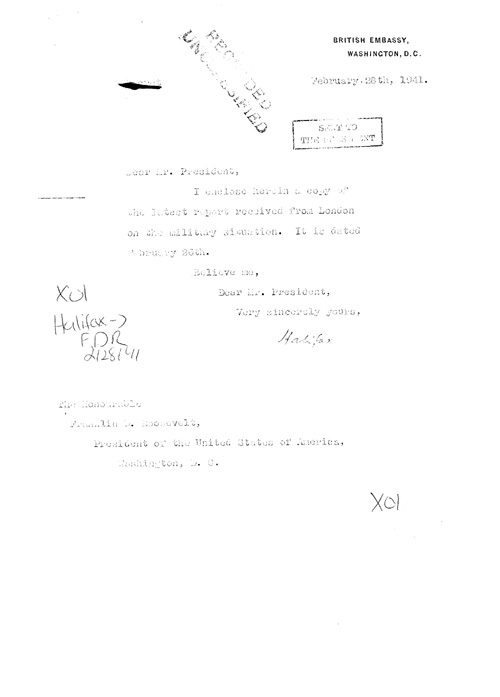 BRITISH EMBASSY,
WASHINGTON, D.C.
REGRADED
UNCLASSIFIED
February 28th, 1941.
SENT TO
THE PRESIDENT
Dear Mr. President,
I enclose herein a copy of
the latest report received from London
on the military situation. It is dated
February 26th.
Believe me,
Dear Mr. President,
Very sincerely yours,
Halifax
X01
Halifax->
FDR
2/28/41
The Honourable
Franklin D. Roosevelt,
President of the United States of America,
Washington, D. C.
X01